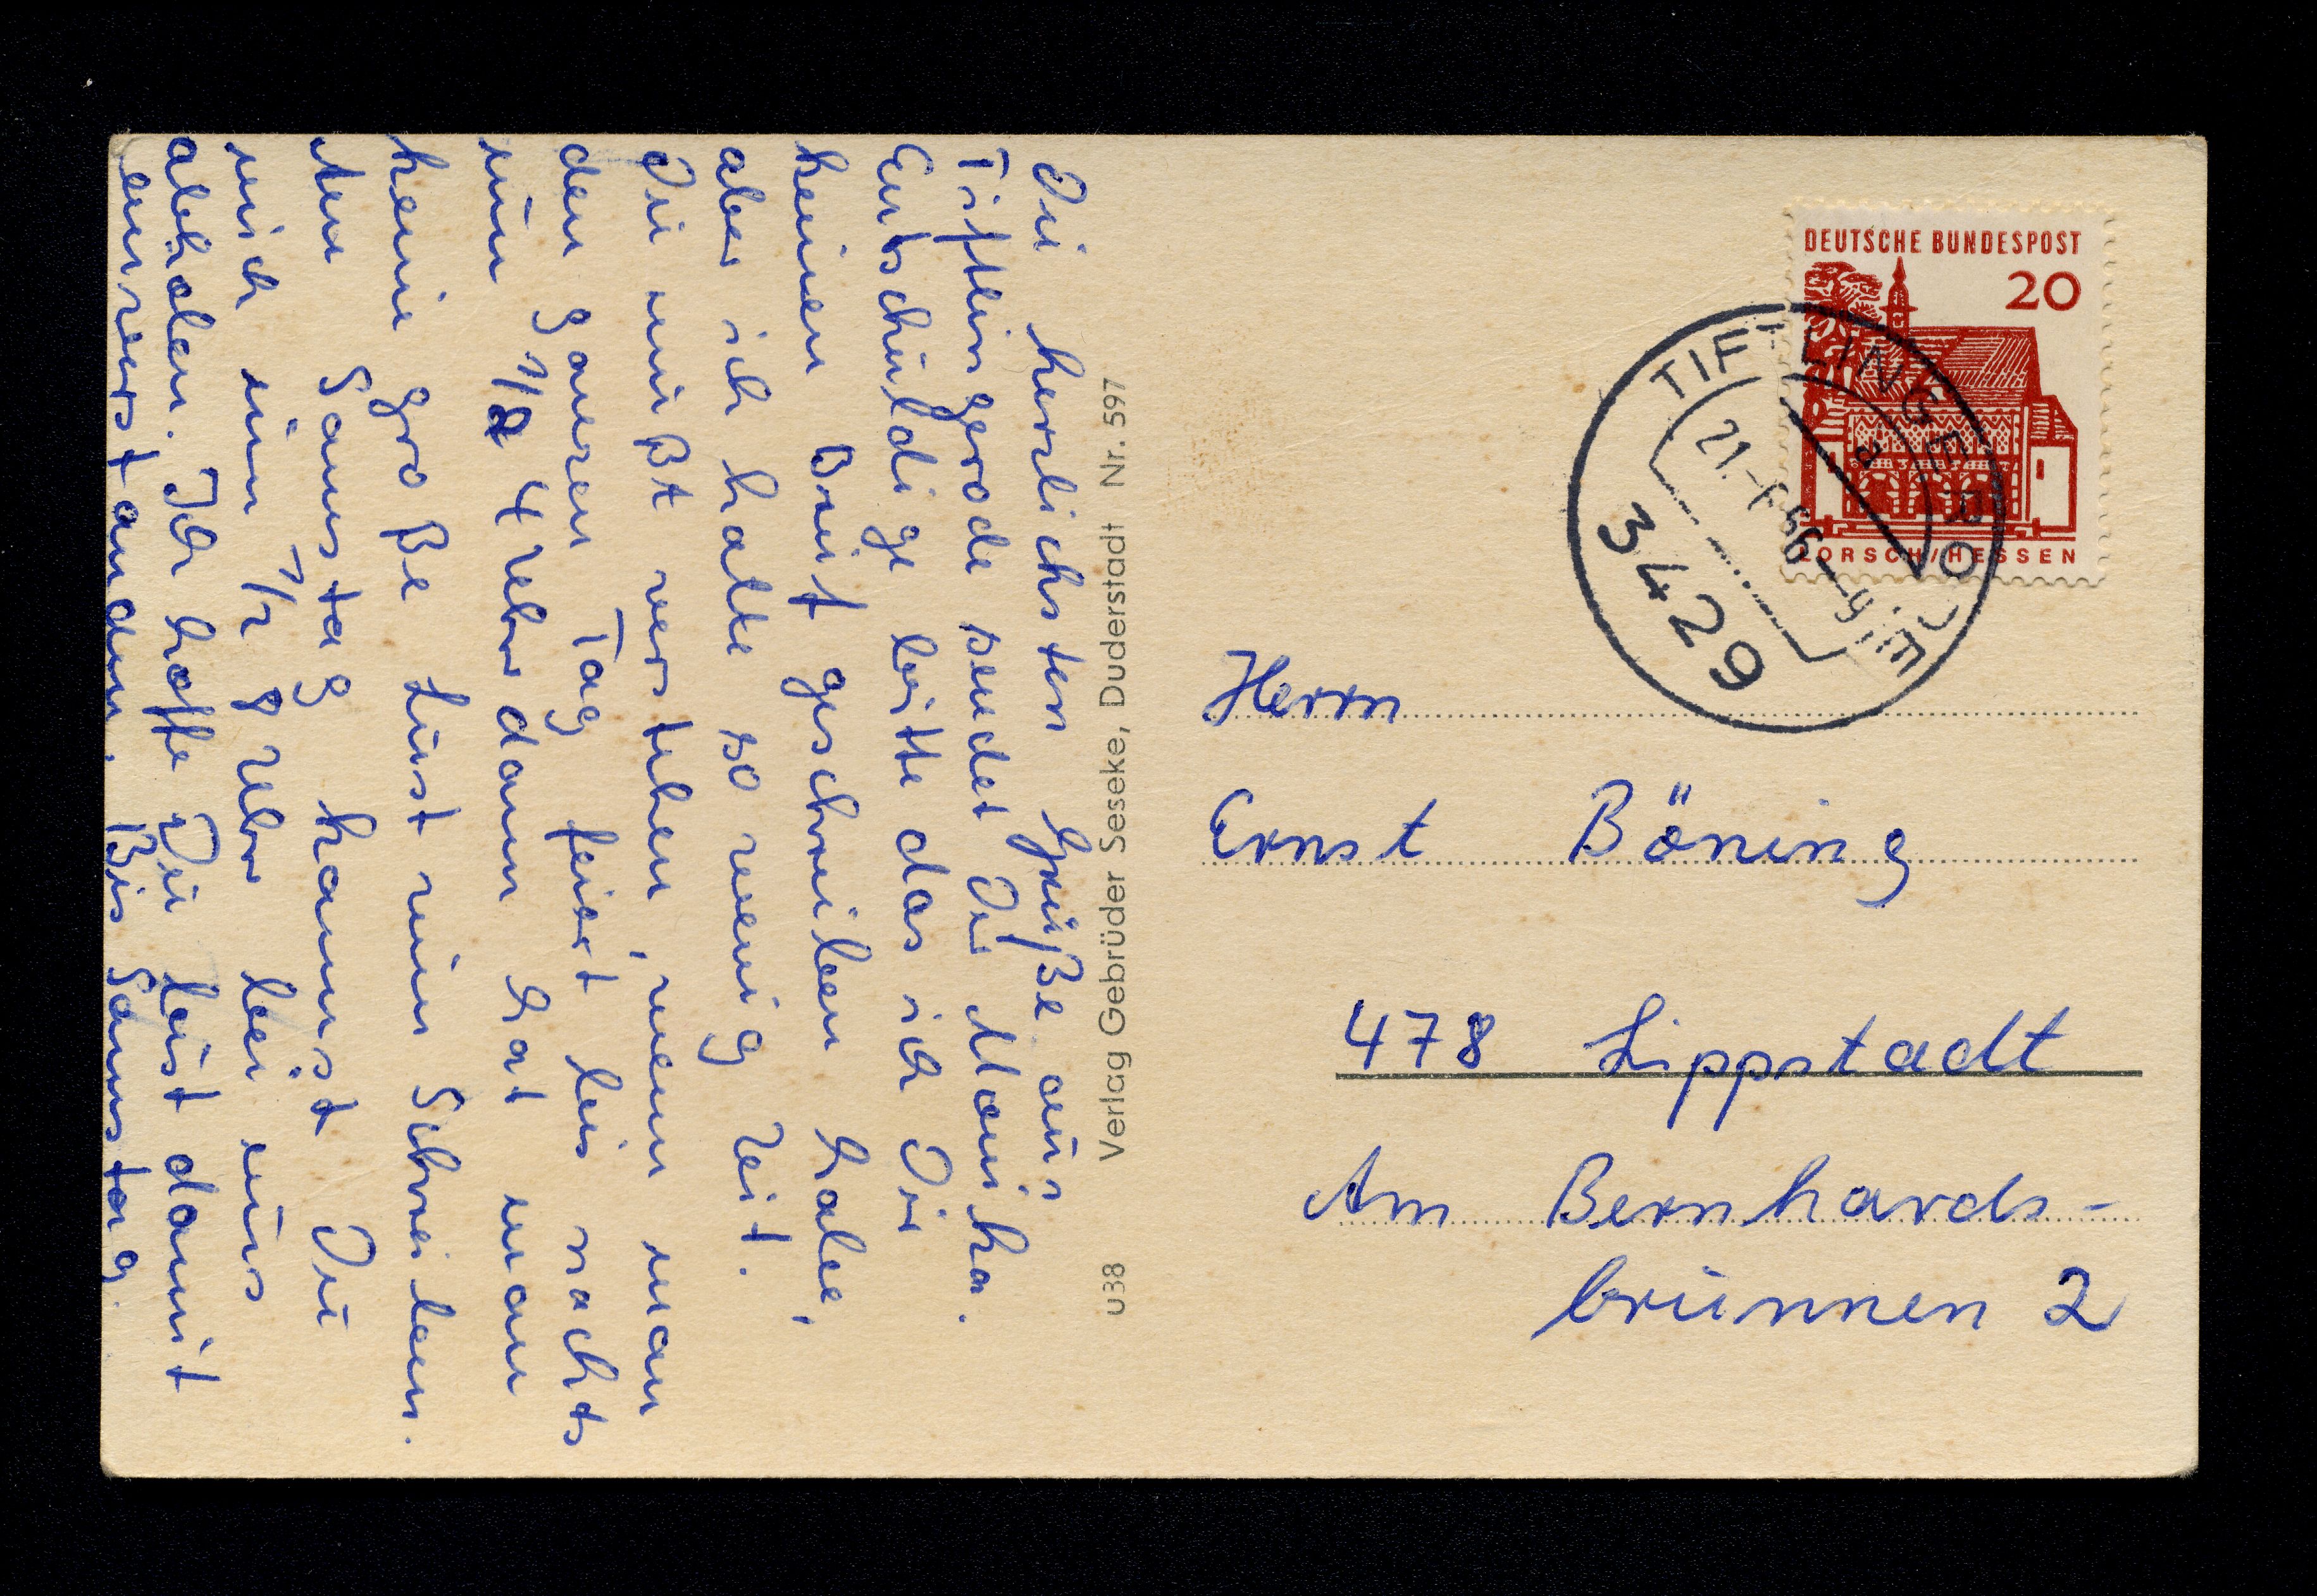 Die herzlichsten Grüße aus
Tiftlingerode sendet Dir Monika.
Entschuldige bitte das ich Dir
keinen Brief geschrieben habe,
aber ich hatte so wenig Zeit.
Du mußt verstehen, wenn man
den ganzen Tag feiert bis nachts
um 1/2 4 Uhr dann hat man
keine große Lust zum Schreiben.
Am Samstag kannst Du
mich um 1/2 8 Uhr bei uns
abholen. Ich hoffe Du bist damit
einverstanden. Bis Samstag.
U38 Verlag Gebrüder Seseke, Duderstadt Nr. 597
DEUTSCHE BUNDESPOST
20
LORSCH/HESSEN
TIFTLINGERODE
a
3429
Herrn
Ernst Böning
478 Lippstadt
Am Bernhards-
brunnen 2